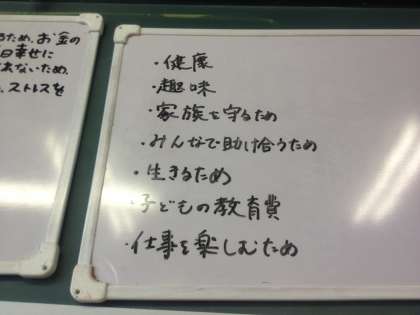 るため、お金の
日幸せに
来ないため、
、ストレスを
・健康
・趣味
・家族を守るため
・みんなで助け合うため
・生きるため
・子どもの教育費
・仕事を楽しむため